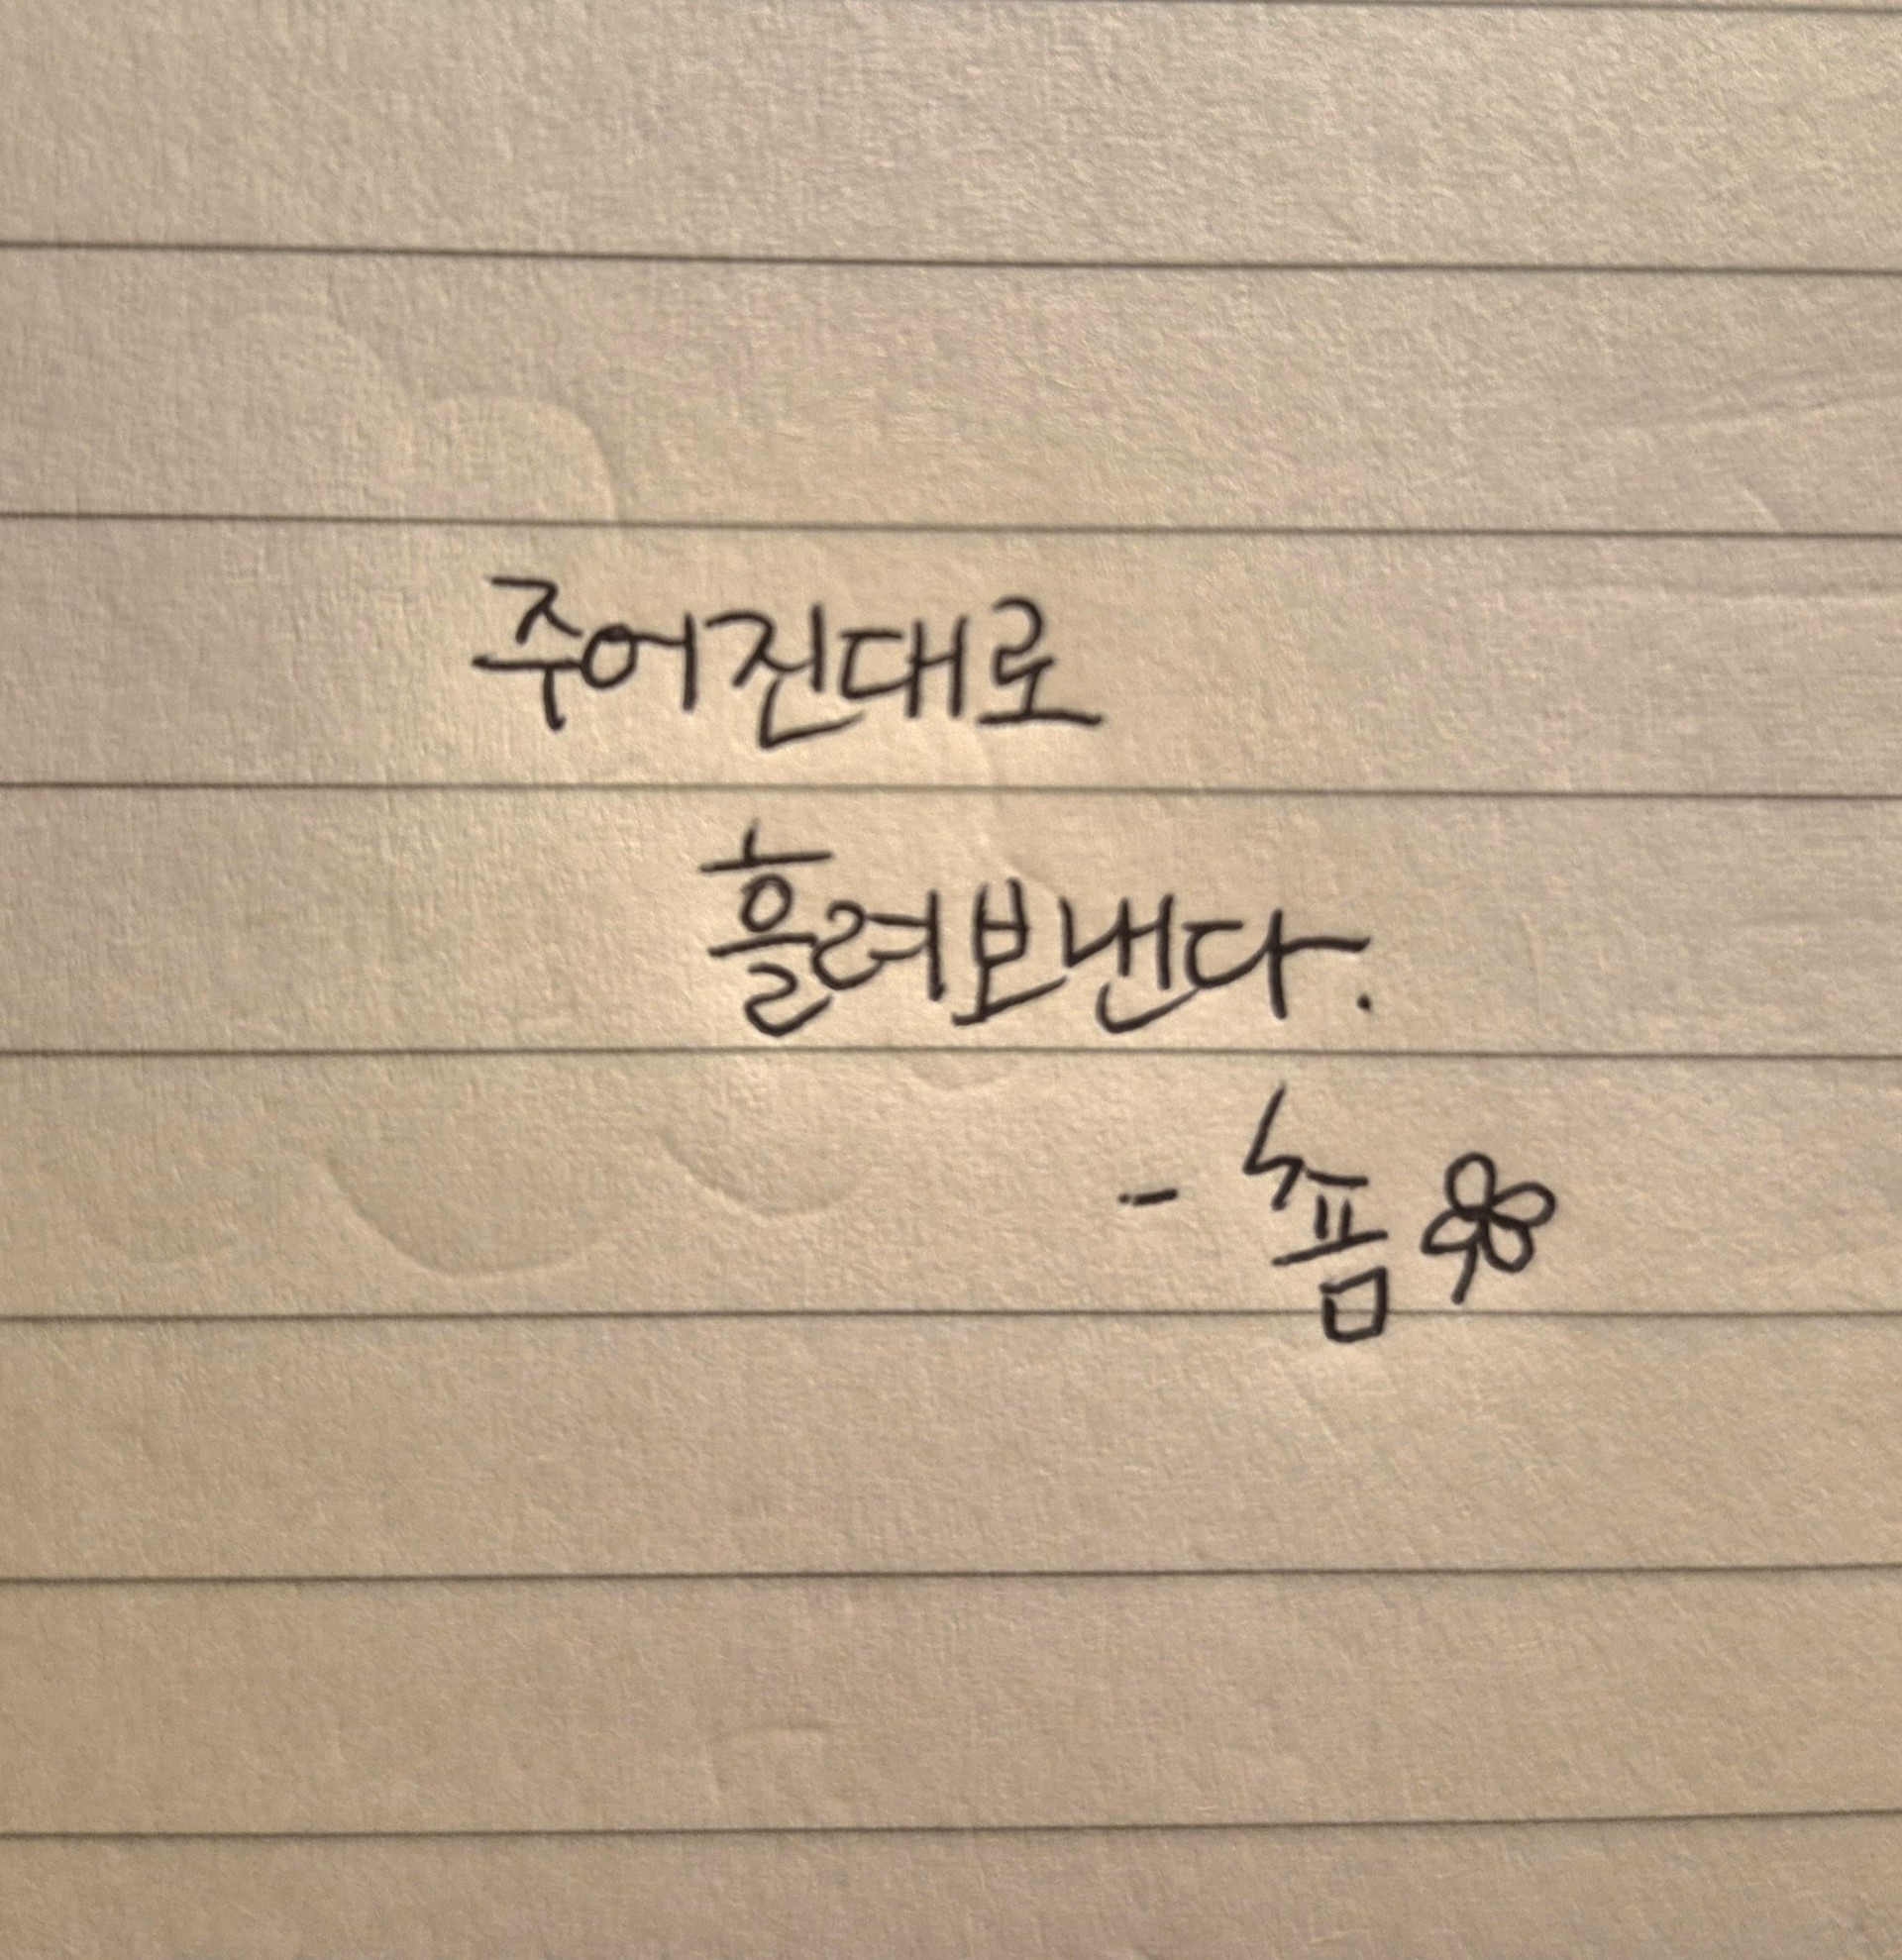 주어진대로
흘려보낸다.